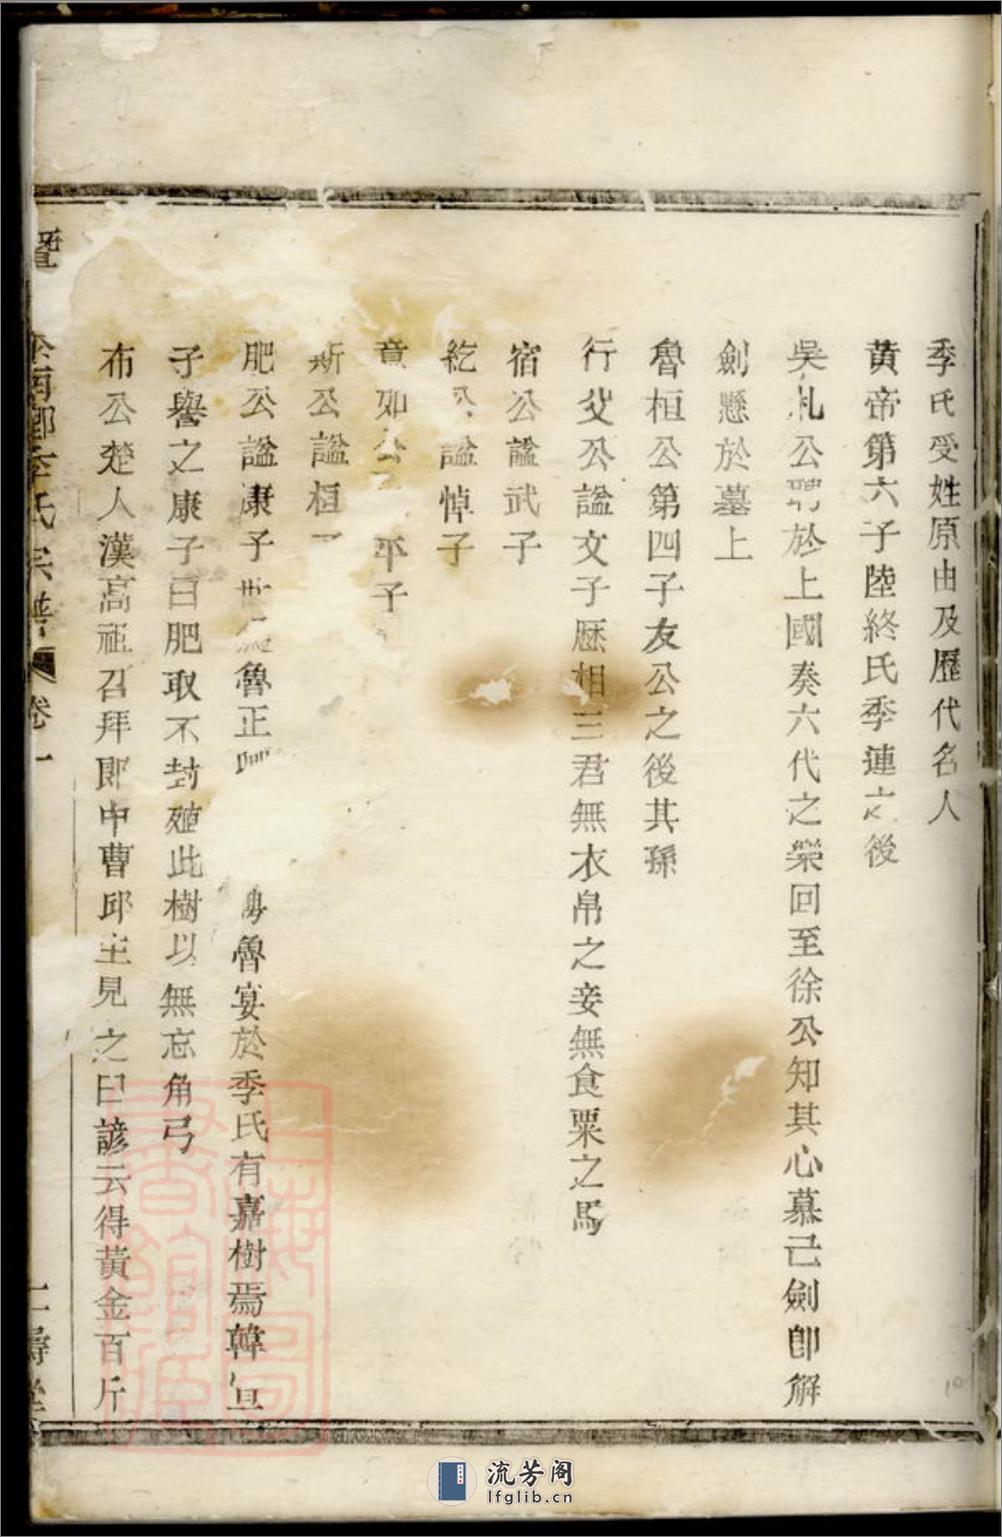 季氏受姓原由及歷代名人
黄帝第六子陸終氏季連之後
吳札公聘於上國奏六代之樂回至徐公知其心慕己劍卽解
劍懸於墓上
魯桓公第四子友公之後其孫
行父公諡文子歷相三君無衣帛之妾無食粟之馬
宿公諡武子
紇公諡悼子
意如公 平子
斯公諡桓
肥公諡康子 魯正 魯宴於季氏有嘉樹焉韓宣
子譽之康子曰肥取不封殖此樹以無忘角弓
布公楚人漢高祖召拜郎中曹邱生見之曰諺云得黃金百斤
暨 南鄉季氏宗譜 卷一
流芳阁
lfglib.cn